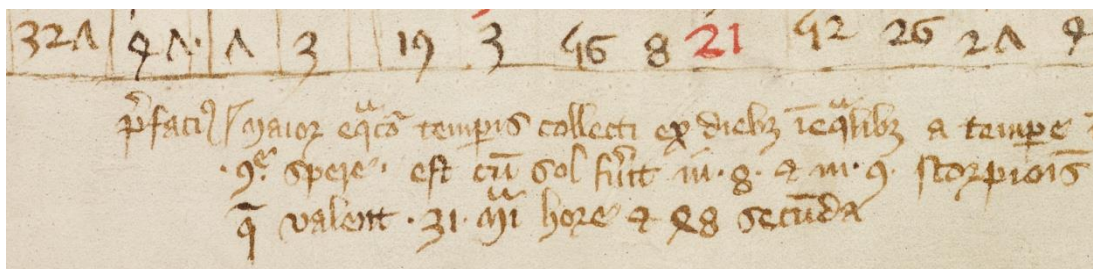 32Λ 4Λ· Λ 3 19 3 46 8 21 42 26 2Λ 4
p̄faciꝰ maior eq̄co tempis collecti ex diebꝫ īeq̄libꝫ a tempe
·9e· spere· est cū sol fu̓it in·8· ⁊ in·9· scorpiois
q̄ valent ·31· mi hore ⁊ 48 secūda